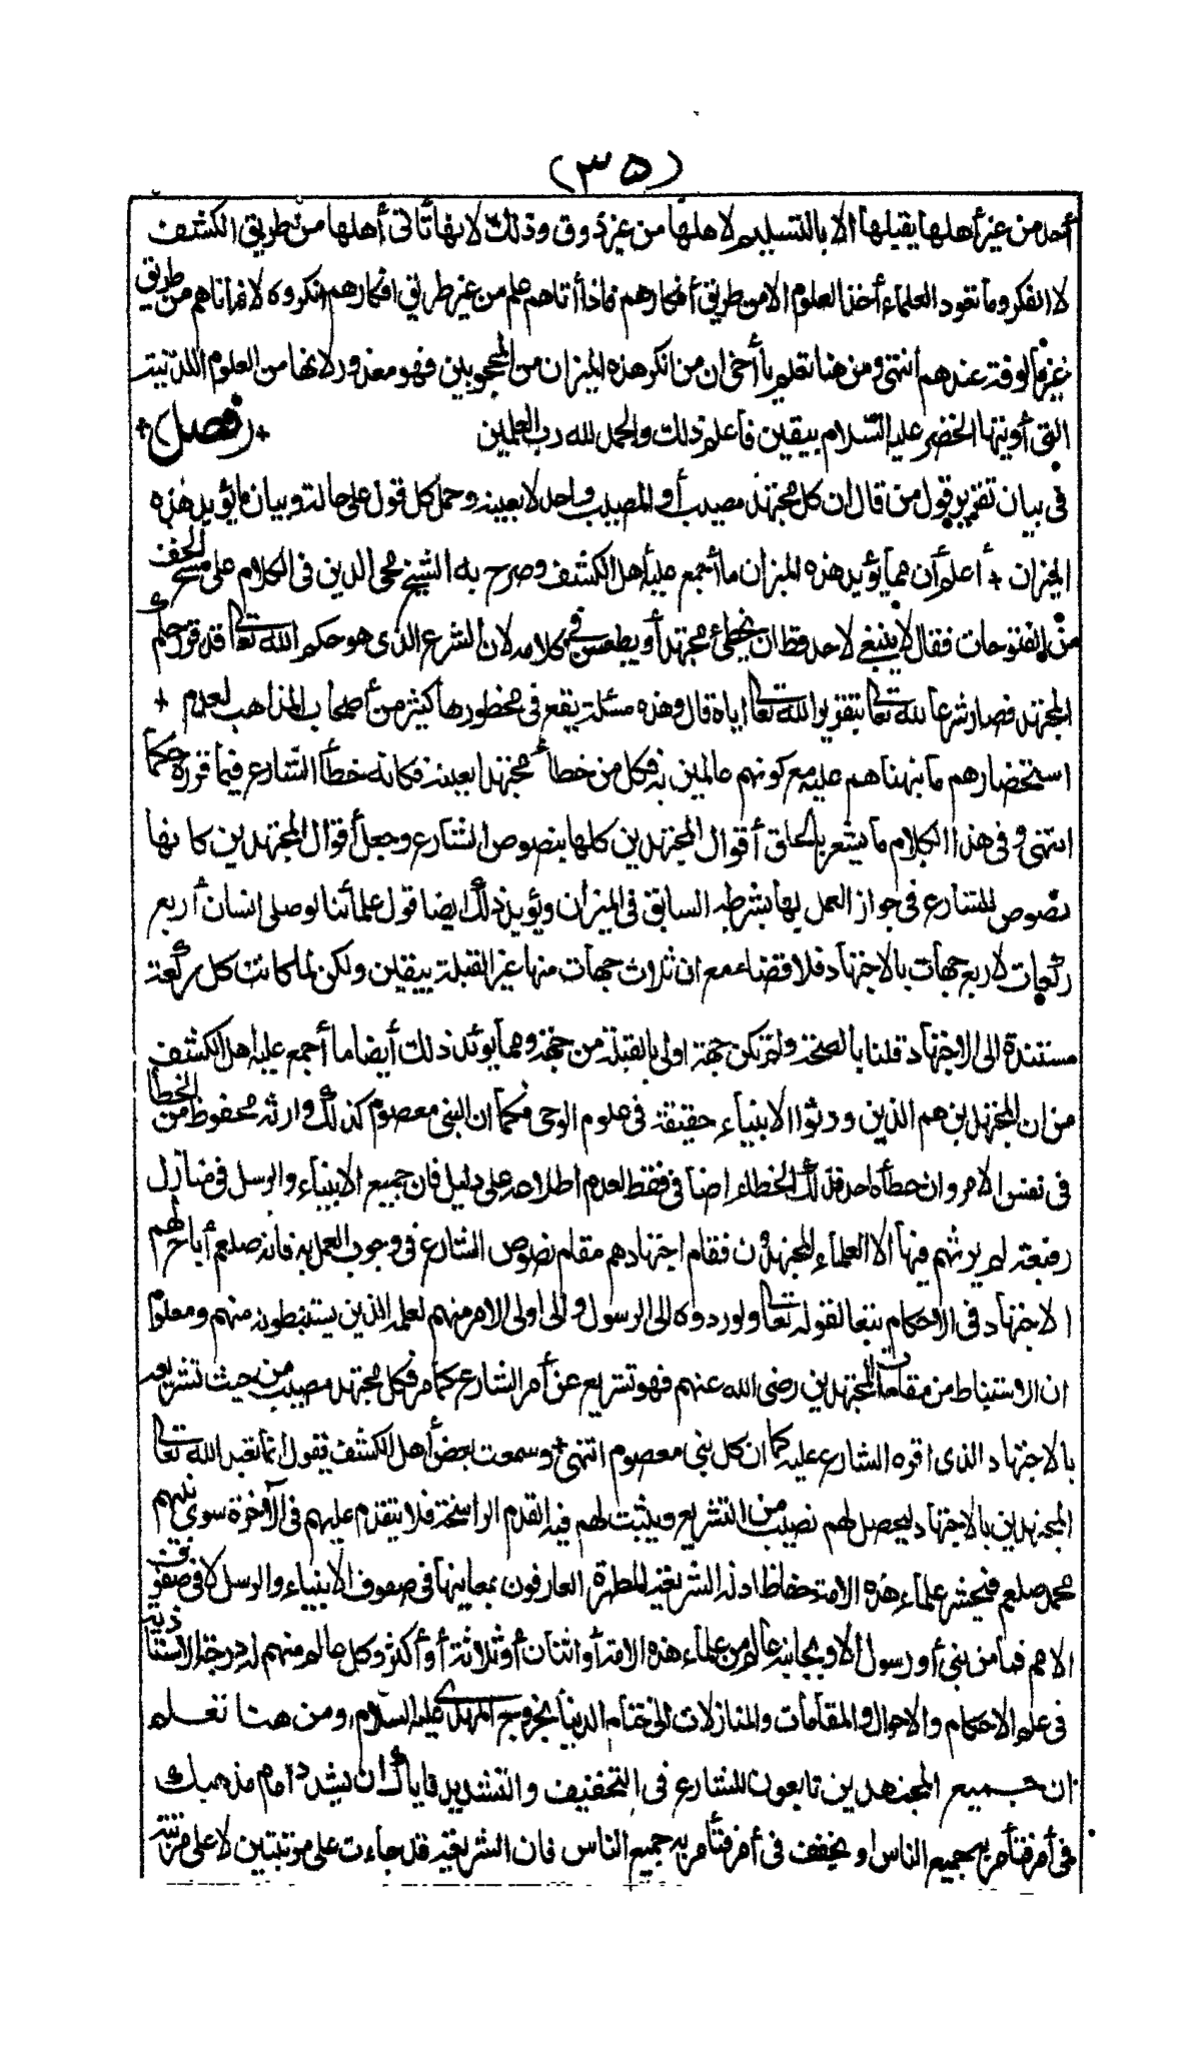 (٣٥)
أحد من غير أهلها يقبلها الا بالتسليم لاهلها من غير ذوق وذلك لانها تأتى أهلها من طريق الكشف
لا الفكر وما تعود العلماء أخذ العلوم الا من طريق أفكارهم فاذا أتاهم علم من غير طريق افكارهم انكروه لانه أتاهم من طريق
غير مألوفة عندهم انتهى ومن هنا تعلم يا أخى ان من انكر هذه الميزان من المحجوبين فهو معذور لانها من العلوم اللدنية
التى أوتيها الخضر عليه السلام بيقين فاعلم ذلك والحمد لله رب العلمين + فصل +
فى بيان تقرير قول من قال ان كل مجتهد مصيب أو المصيب واحد لا بعينه وحمل كل قول على حالة وبيان ما يؤيد هذه
الميزان + أعلم أن مما يؤيد هذه الميزان ما أجمع عليه أهل الكشف وصرح به الشيخ محى الدين فى الكلام على مسح الخف
من الفتوحات فقال لا ينبغى لاحد قط ان يخطئ مجتهدا أو يطعن فى كلامه لان الشرع الذى هو حكم الله تعالى قد قرر حكم
المجتهد فصار شرعا لله تعالى بتقرير الله تعالى اياه قال وهذه مسئلة يقع فى محظورها كثير من أصحاب المذاهب لعدم +
استحضارهم ما نبهناهم عليه مع كونهم عالمين به فكل من خطأ مجتهدا بعينه فكانه خطأ الشارع فيما قرره حكما
انتهى وفى هذا الكلام ما يشعر بالحاق أقوال المجتهدين كلها بنصوص الشارع وجعل أقوال المجتهدين كانها
نصوص للشارع فى جواز العمل بها بشرطه السابق فى الميزان ويؤيد ذلك ايضا قول علمائنا لو صلى انسان أربع
ركعات لاربع جهات بالاجتهاد فلا قضاء مع ان ثلاث جهات منها غير القبلة بيقين ولكن لما كانت كل ركعة
مستندة الى الاجتهاد قلنا بالصحة ولم تكن جهة اولى بالقبلة من جهة ومما يؤيد ذلك أيضا ما أجمع عليه اهل الكشف
من ان المجتهدين هم الذين ورثوا الانبياء حقيقة فى علوم الوحى فكما ان النبى معصوم كذلك وارثه محفوظ من الخطأ
فى نفس الامر وان خطأه احد فذلك الخطاء اضافى فقط لعدم اطلاعه على دليل فان جميع الانبياء والرسل فى منازل
رفيعة لم يرثهم فيها الا العلماء المجتهدون فقام اجتهادهم مقام نصوص الشارع فى وجوب العمل به فانه صلعم أباح لهم
الاجتهاد فى الاحكام تبعا لقوله تعالى ولو ردوه الى الرسول والى اولى الامر منهم لعلمه الذين يستنبطونه منهم ومعلوم
ان الاستنباط من مقامات المجتهدين رضى الله عنهم فهو تشريع عن أمر الشارع كما مر فكل مجتهد مصيب من حيث تشريعه
بالاجتهاد الذى اقره الشارع عليه كما ان كل نبى معصوم انتهى + وسمعت بعض أهل الكشف يقول انما تعبد الله تعالى
المجتهدين بالاجتهاد ليحصل لهم نصيب من التشريع ويثبت لهم فيه القدم الراسخة فلا يتقدم عليهم فى الآخرة سوى نبيهم
محمد صلعم فيحشر علماء هذه الامة حفاظ ادلة الشريعة المطهرة العارفون بمعانيها فى صفوف الانبياء والرسل لا فى صفوف
الامم فما من نبى أو رسول الا وبجانبه عالم من علماء هذه الامة أو اثنان أو ثلاثة أو أكثر وكل عالم منهم له درجة الاستاذية
فى علم الاحكام والاحوال والمقامات والمنازلات الى ختام الدنيا بخروج المهدى عليه السلام ومن هنا تعلم
ان جميع المجتهدين تابعون للشارع فى التخفيف والتشديد فاياك ان يشدد امام مذهبك
فى أمر فتأمر به جميع الناس او يخفف فى أمر فتأمر به جميع الناس فان الشريعة قد جاءت على مرتبتين لا على مرتبة